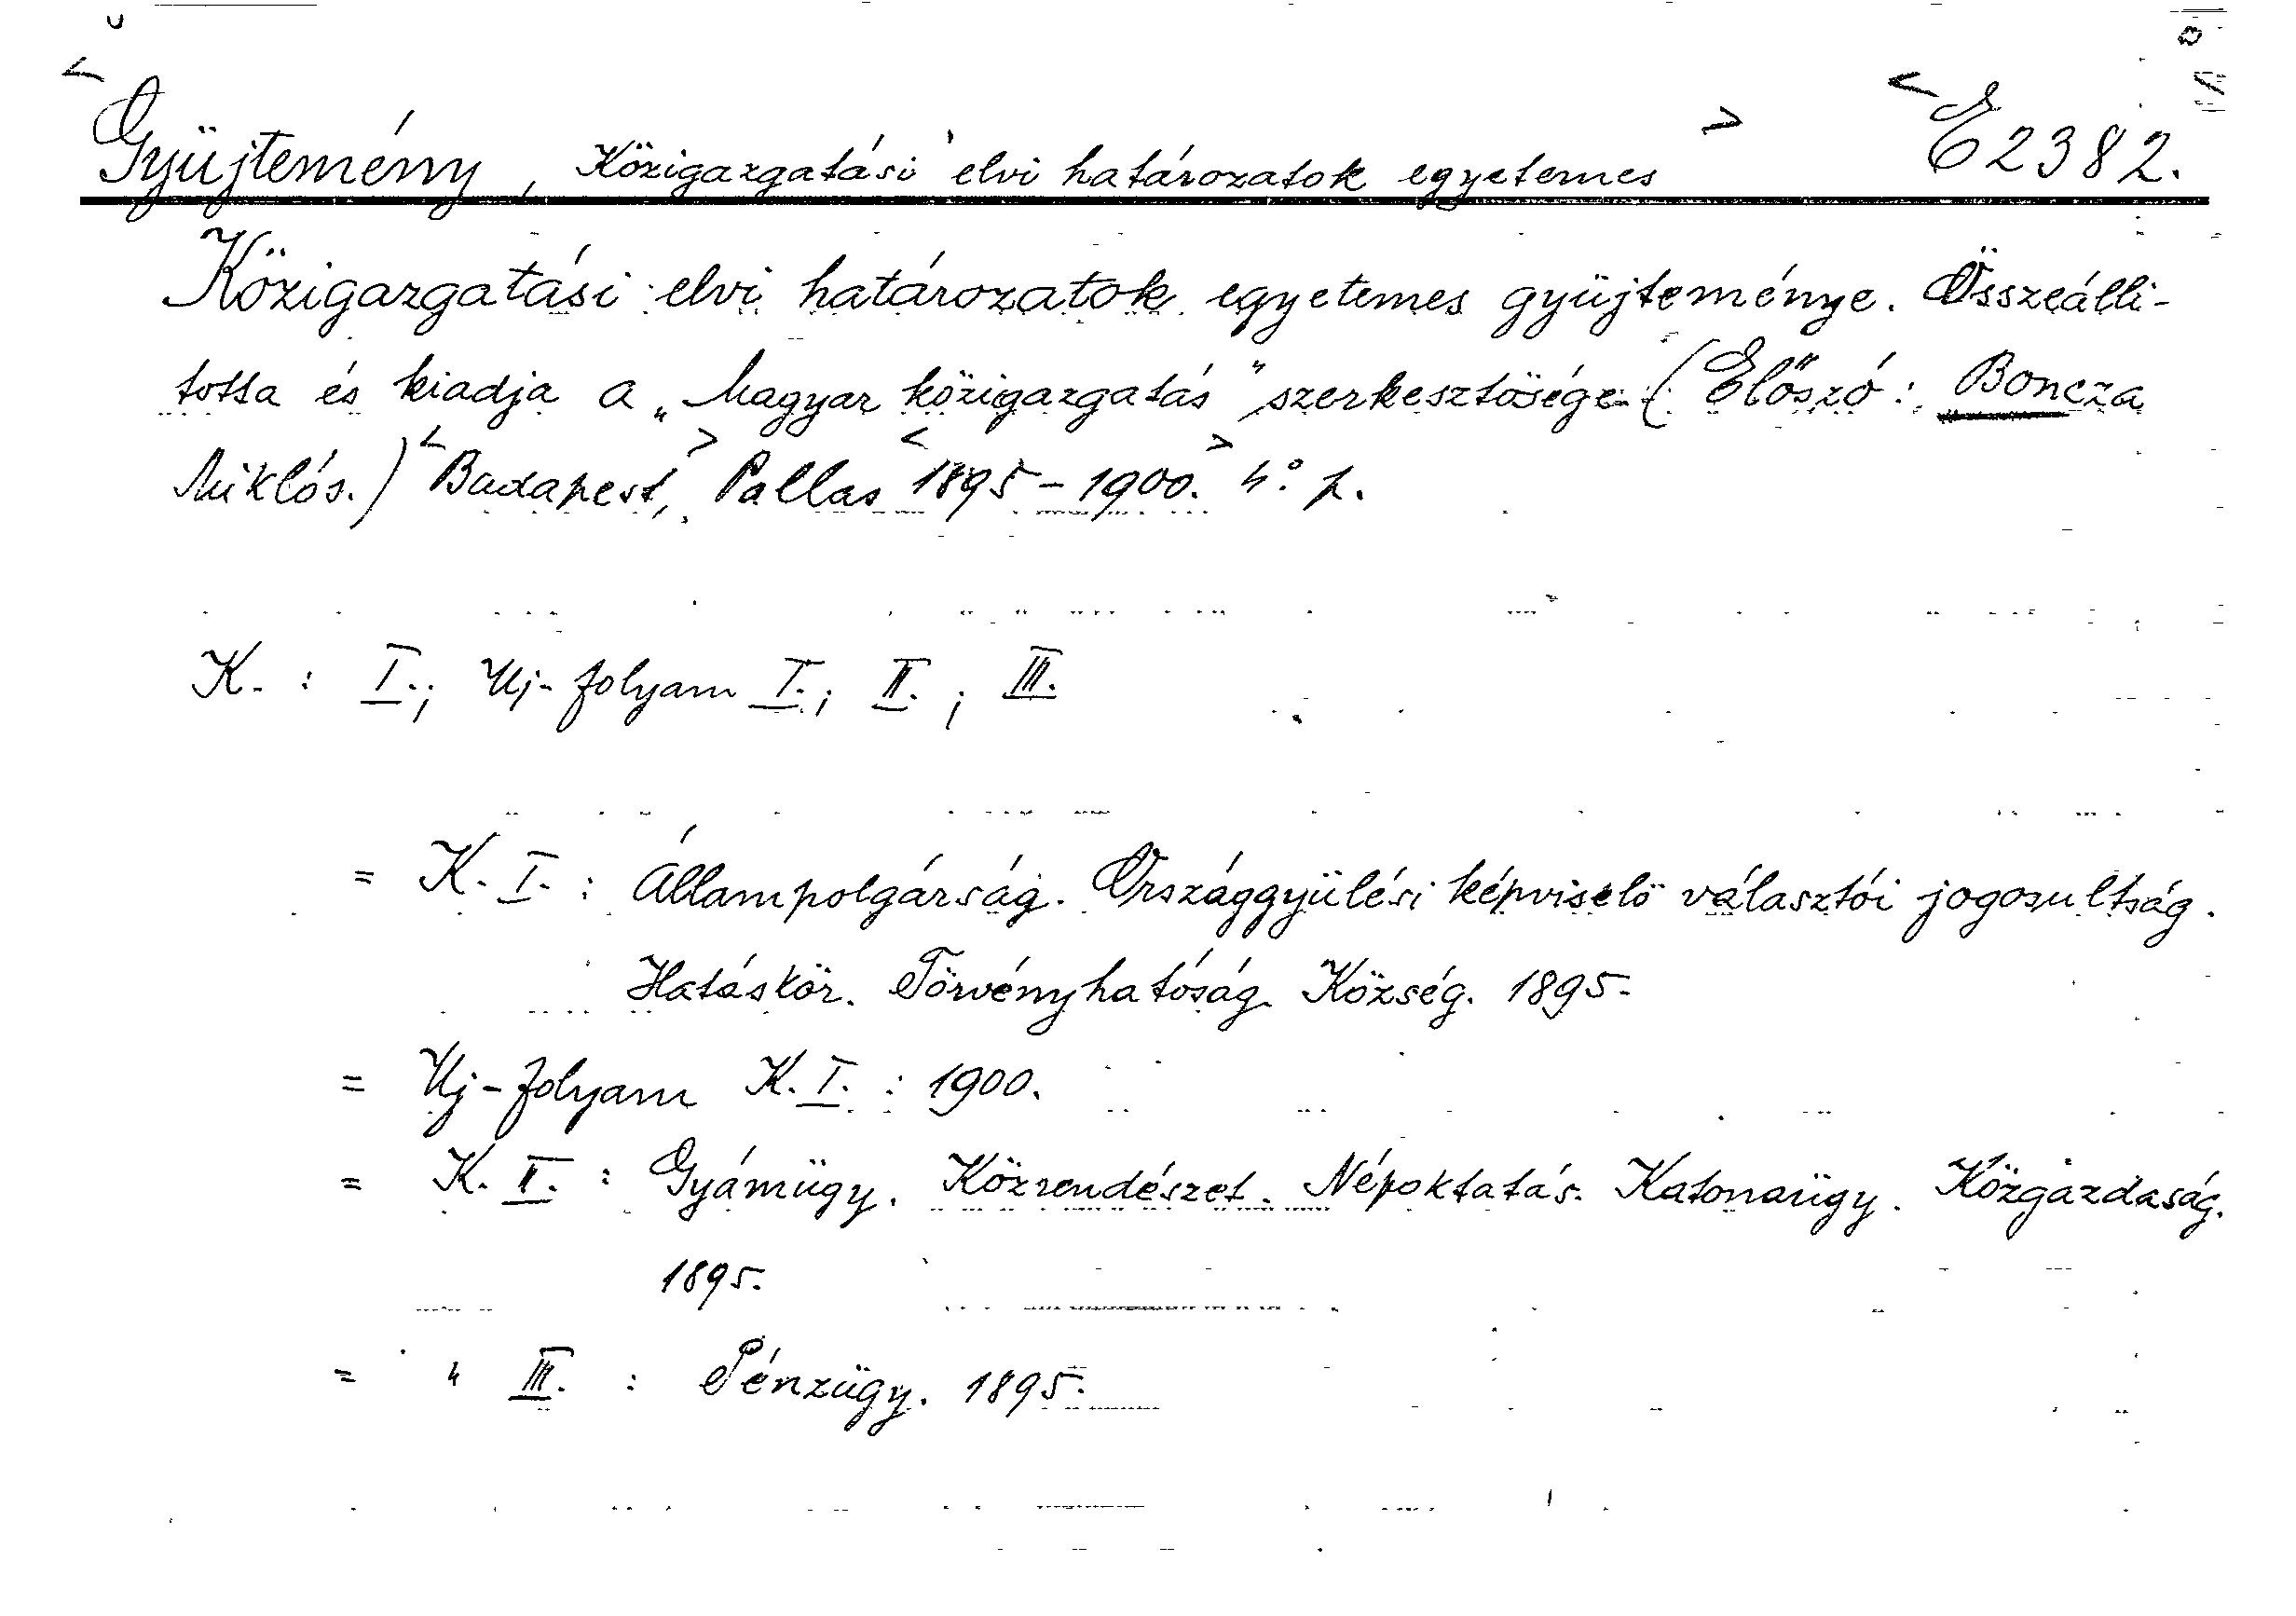 < Gyüjtemény, Közigazgatási elvi határozatok egyetemes > < E2382.
Közigazgatási elvi határozatok egyetemes gyüjteménye. Összeálli-
totta és kiadja a „Magyar közigazgatás" szerkesztösége. (Előszó: Boncza
Miklós.) < Budapest, > Pallas < 1895-1900. > 4° 1.
K. : I.; Uj-folyam I.; II.; III.
= K. I. : Állampolgárság. Országgyülési képviselö választói jogosultság.
Hatáskör. Törvényhatóság. Község. 1895.
= Uj-folyam K. I. : 1900.
= K. II. : Gyámügy. Közrendészet. Népoktatás. Katonaügy. Közgazdaság.
1895.
= " III. : Pénzügy. 1895.